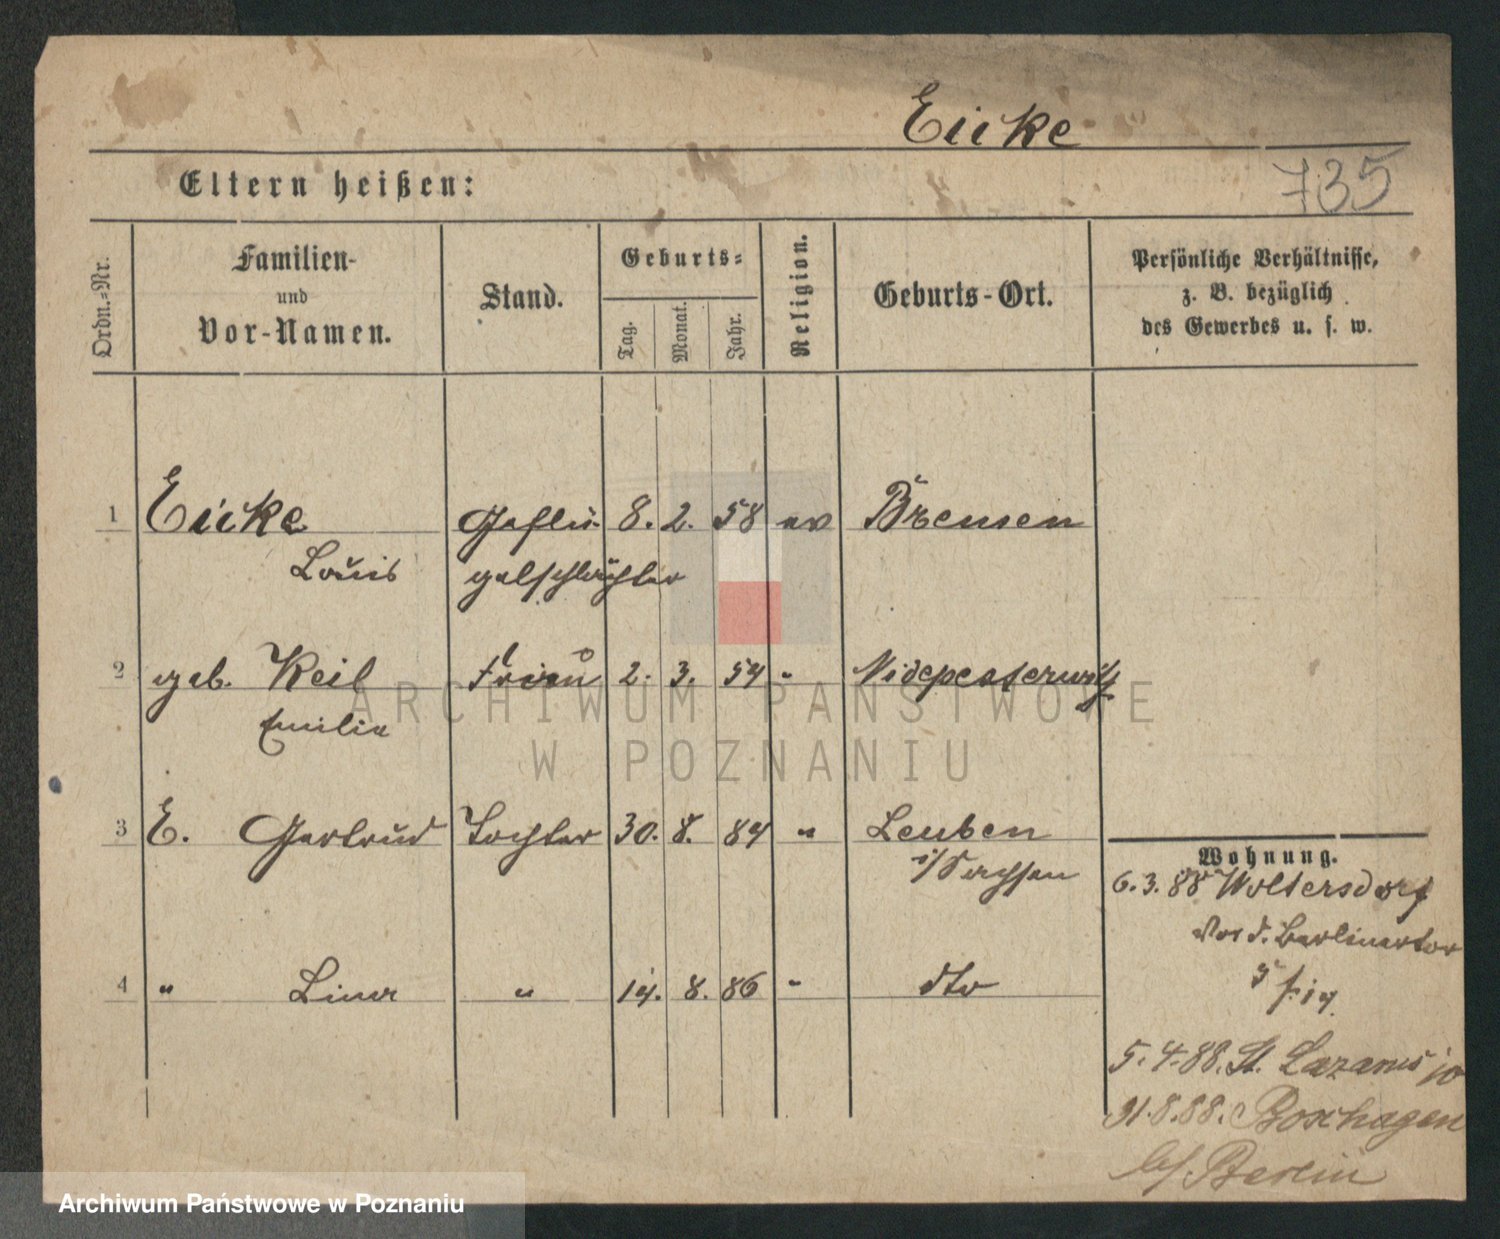 Eicke
735
Eltern heißen:
Ordn.-Nr.
Familien-
und
Vor-Namen.
Stand.
Geburts-
Tag.
Monat.
Jahr.
Religion.
Geburts-Ort.
Persönliche Verhältnisse,
z. B. bezüglich
des Gewerbes u. s. w.
1 Eicke Geflü- 8. 2. 58 ev Bremen
Louis gelschlächter
2 geb. Keil Frau 2. 3. 54 "
Emilie
3 E. Gertrud Tochter 30. 8. 84 " Leuben
i/Sachsen
4 " " 14. 8. 86 " dto
Wohnung.
6.3.88 Woltersdorf
vor d. Berlinertor
5.4.88. St. Lazarus 10
31.8.88. Boxhagen
b/. Berlin
ARCHIWUM PAŃSTWOWE
W POZNANIU
Archiwum Państwowe w Poznaniu